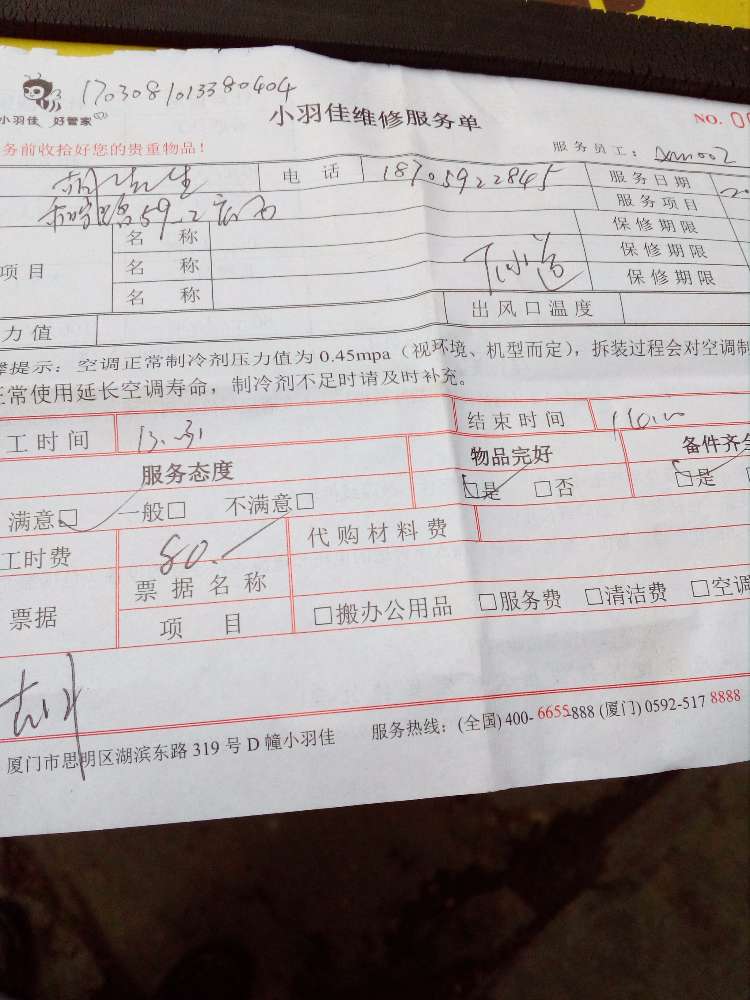 1703081013380404
小羽佳 好管家
小羽佳维修服务单
NO. 0
务前收拾好您的贵重物品!
服务员工:
胡先生 电 话 18705922845 服务日期
59 服务项目
项目 名 称 保修期限
名 称 保修期限
名 称 保修期限
力值 出风口温度
提示:空调正常制冷剂压力值为 0.45mpa(视环境、机型而定),拆装过程会对空调制
正常使用延长空调寿命,制冷剂不足时请及时补充。
工时间 结束时间
服务态度 物品完好 备件齐全
满意□ 一般□ 不满意□ □是 □否 □是
工时费 80. 代购材料费
票据 票据名称
项 目 □搬办公用品 □服务费 □清洁费 □空调
厦门市思明区湖滨东路 319 号 D 幢小羽佳 服务热线:(全国) 400-6655-888 (厦门) 0592-517 8888